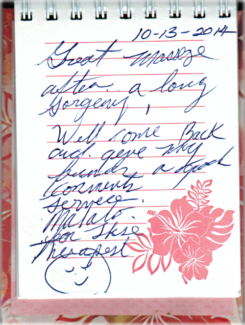 10-13-2014
Great Massge
after a long
sorgeny,
Well come Back
and geve my
freinds a good
coments
service.
Mahalo.
for thise
therapest